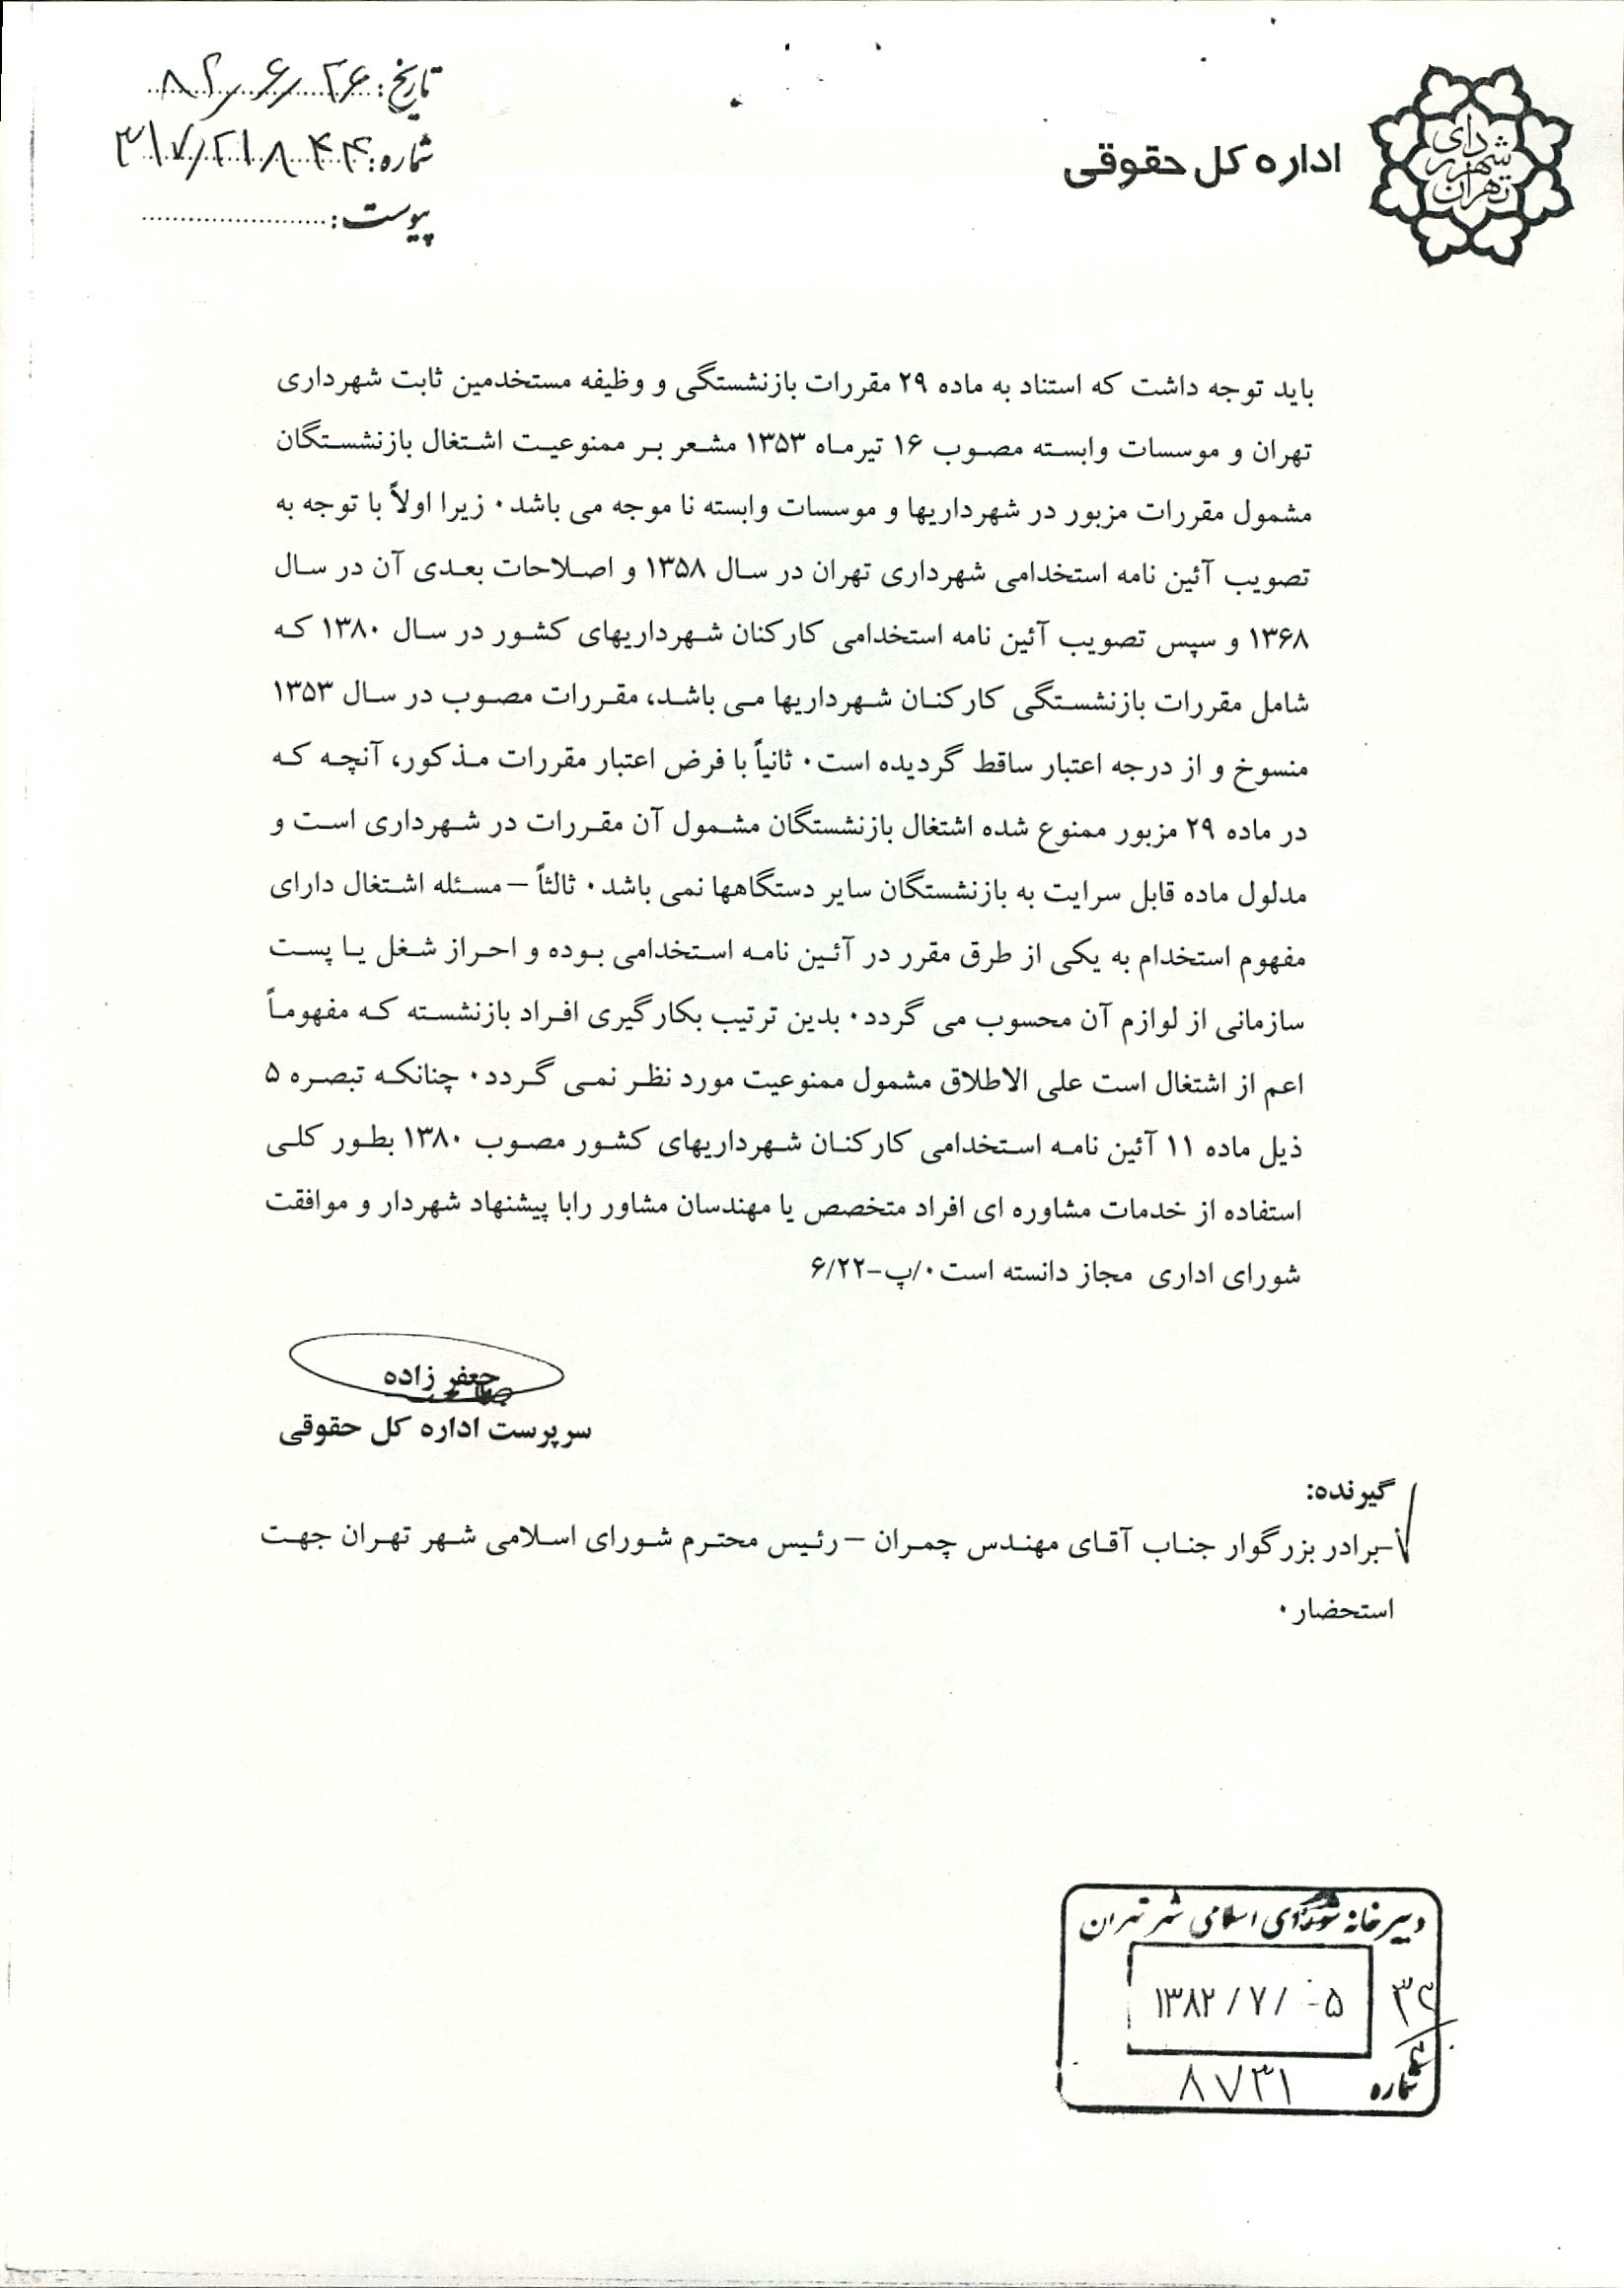 شهرداری
تهران
اداره کل حقوقی
تاریخ: ۸۲/۶/۲۶
شماره: ۳۱۷/۲۱۸۴۴
پیوست:
باید توجه داشت که استناد به ماده ۲۹ مقررات بازنشستگی و وظیفه مستخدمین ثابت شهرداری
تهران و موسسات وابسته مصوب ۱۶ تیرماه ۱۳۵۳ مشعر بر ممنوعیت اشتغال بازنشستگان
مشمول مقررات مزبور در شهرداریها و موسسات وابسته نا موجه می باشد۰ زیرا اولاً با توجه به
تصویب آئین نامه استخدامی شهرداری تهران در سال ۱۳۵۸ و اصلاحات بعدی آن در سال
۱۳۶۸ و سپس تصویب آئین نامه استخدامی کارکنان شهرداریهای کشور در سال ۱۳۸۰ که
شامل مقررات بازنشستگی کارکنان شهرداریها می باشد، مقررات مصوب در سال ۱۳۵۳
منسوخ و از درجه اعتبار ساقط گردیده است۰ ثانیاً با فرض اعتبار مقررات مذکور، آنچه که
در ماده ۲۹ مزبور ممنوع شده اشتغال بازنشستگان مشمول آن مقررات در شهرداری است و
مدلول ماده قابل سرایت به بازنشستگان سایر دستگاهها نمی باشد۰ ثالثاً – مسئله اشتغال دارای
مفهوم استخدام به یکی از طرق مقرر در آئین نامه استخدامی بوده و احراز شغل یا پست
سازمانی از لوازم آن محسوب می گردد۰ بدین ترتیب بکارگیری افراد بازنشسته که مفهوماً
اعم از اشتغال است علی الاطلاق مشمول ممنوعیت مورد نظر نمی گردد۰ چنانکه تبصره ۵
ذیل ماده ۱۱ آئین نامه استخدامی کارکنان شهرداریهای کشور مصوب ۱۳۸۰ بطور کلی
استفاده از خدمات مشاوره ای افراد متخصص یا مهندسان مشاور رابا پیشنهاد شهردار و موافقت
شورای اداری مجاز دانسته است۰/پ–۶/۲۲
جعفر زاده
سرپرست اداره کل حقوقی
گیرنده:
۱–برادر بزرگوار جناب آقای مهندس چمران – رئیس محترم شورای اسلامی شهر تهران جهت
استحضار۰
دبیرخانه شورای اسلامی شهر تهران
۱۳۸۲ / ۷ / -۵
شماره ۸۷۳۱